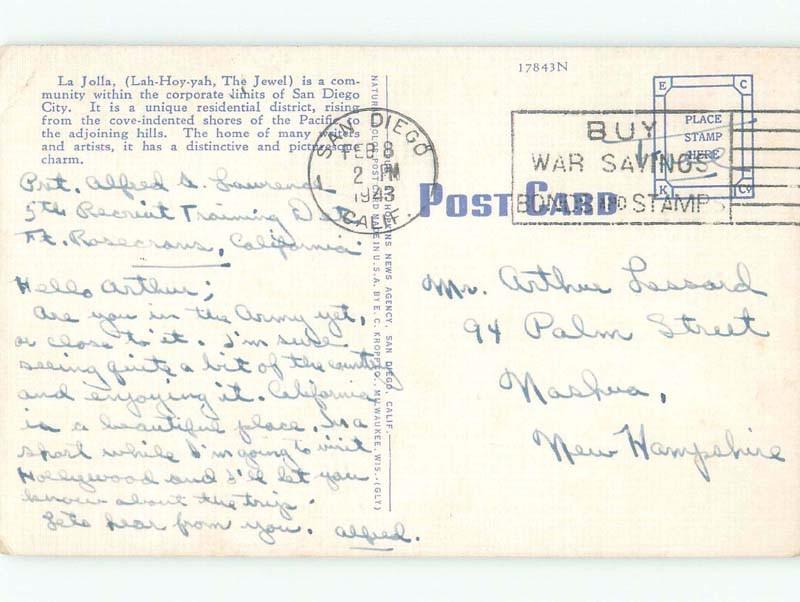 17843N
La Jolla, (Lah-Hoy-yah, The Jewel) is a com-
munity within the corporate limits of San Diego
City. It is a unique residential district, rising
from the cove-indented shores of the Pacific to
the adjoining hills. The home of many writers
and artists, it has a distinctive and picturesque
charm.
Pvt. Alfred G. Lawrence
5th Recruit Training Det.
Ft. Rosecrans, California
Hello Arthur;
Are you in the Army yet,
or close to it. I'm sure
seeing quite a bit of the country
and enjoying it. California
is a beautiful place. In a
short while I'm going to visit
Hollywood and I'll let you
know about the trip.
Lets hear from you. Alfred.
SAN DIEGO
FEB 8
2 PM
1943
CALIF.
BUY
WAR SAVINGS
BONDS AND STAMPS
E C
PLACE
STAMP
HERE
K Co
Free
POST CARD
Mr. Arthur Lessard
94 Palm Street
Nashua,
New Hampshire
HOPKINS NEWS AGENCY, SAN DIEGO, CALIF.
NATURAL COLOR POST CARD MADE IN U.S.A. BY E. C. KROPP CO., MILWAUKEE, WIS.-(GLY)